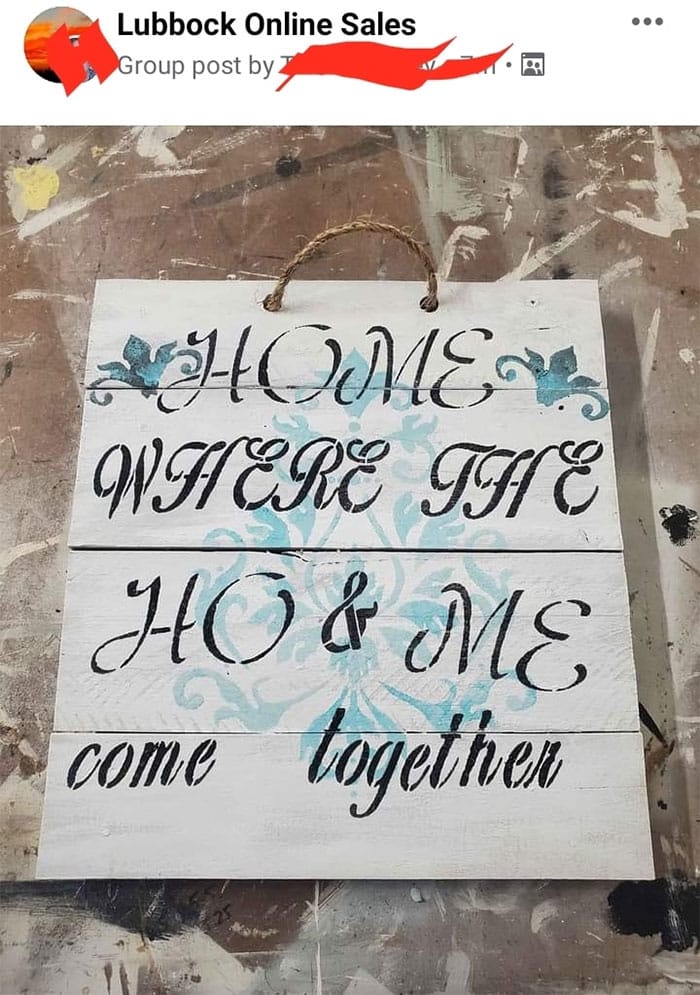 Lubbock Online Sales
Group post by
HOME
WHERE THE
HO & ME
come together